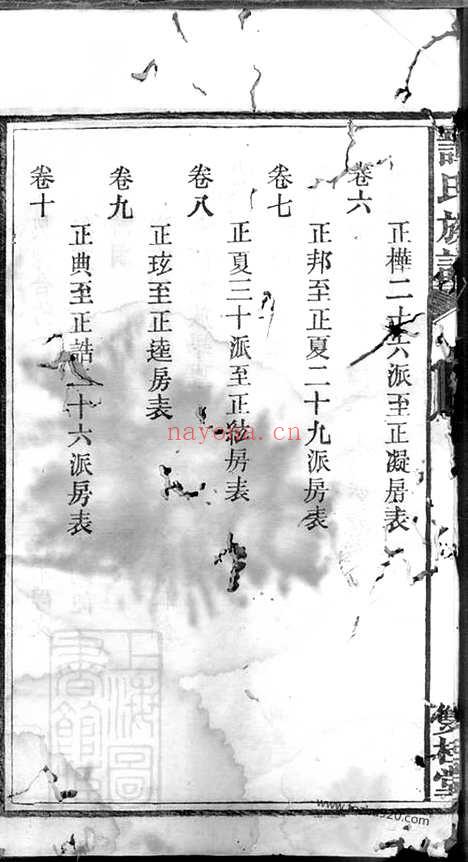 卷六
正樺二十六派至正凝居表
卷七
正邦至正夏二十九派房表
卷八
正夏三十派至正鉉房表
卷九
正玹至正逵房表
卷十
正典至正誥二十六派房表
譚氏族譜
雙桂堂
上海圖書館藏
nayona.cn